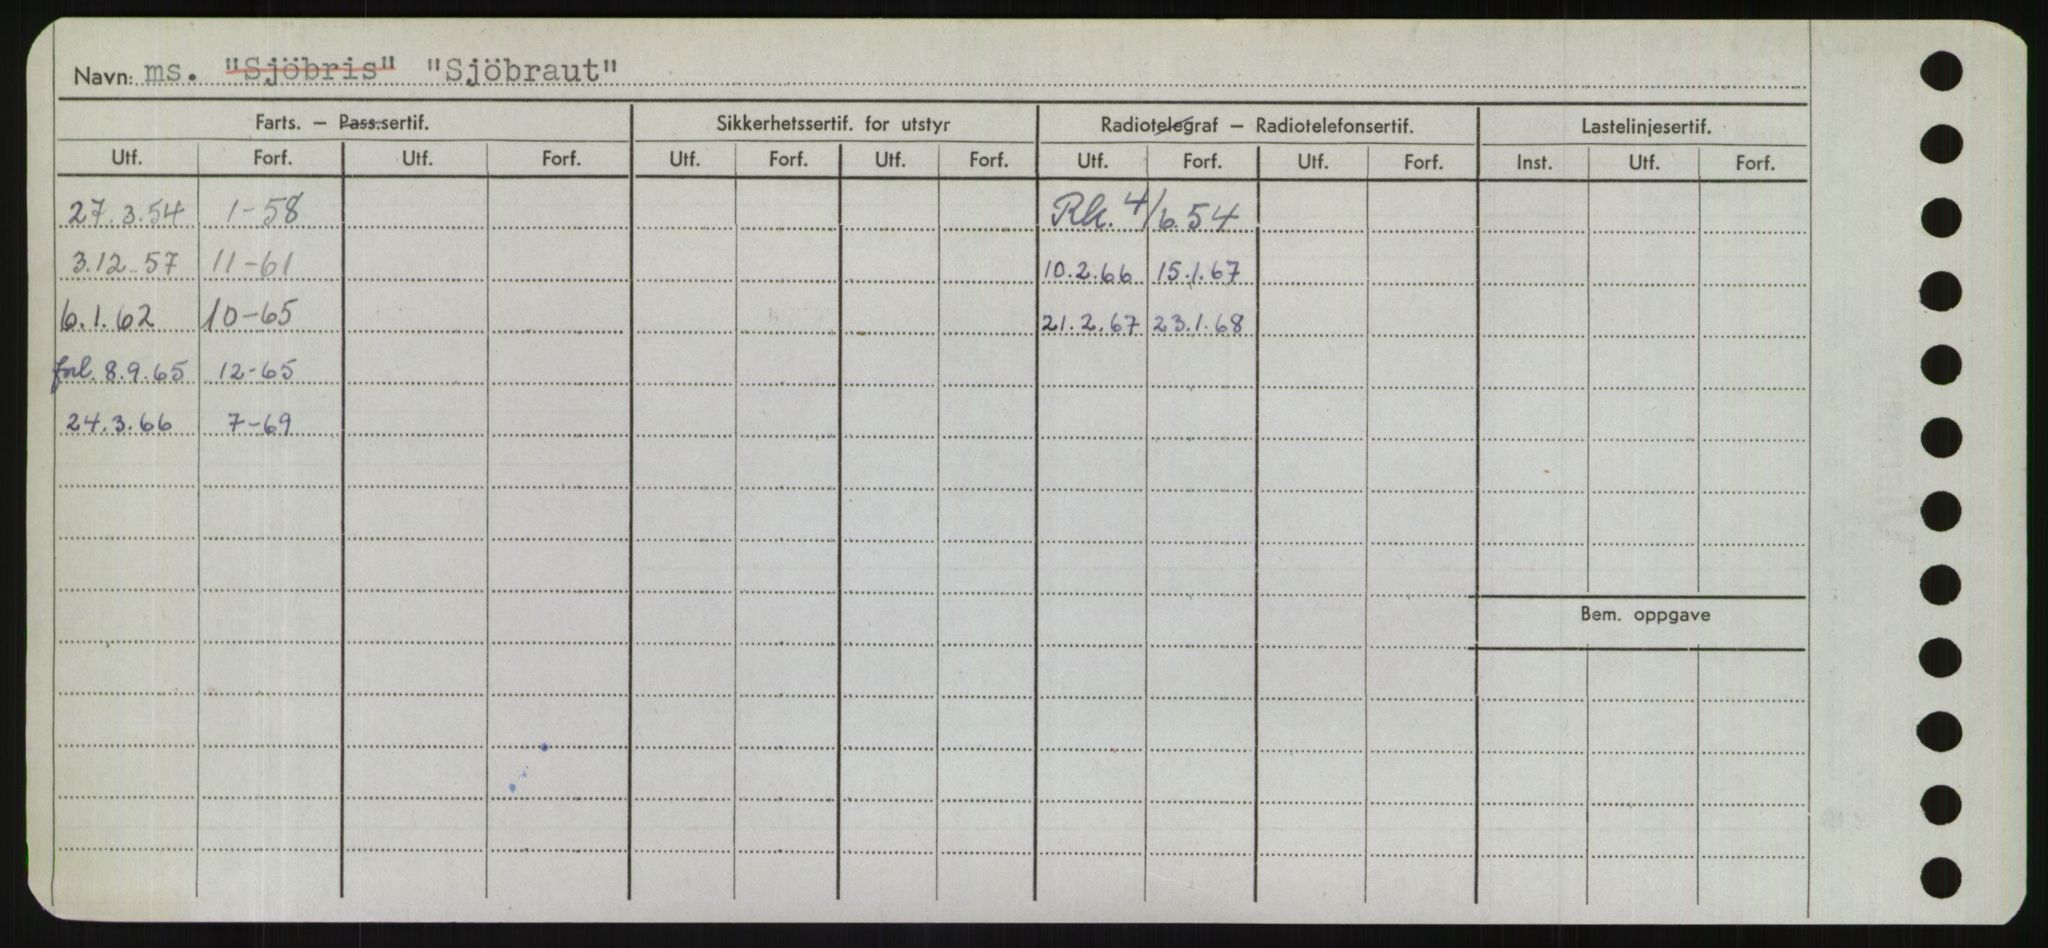 Navn: ms. "Sjöbris" "Sjöbraut"
Farts. — Pass.sertif. Sikkerhetssertif. for utstyr Radiotelegraf — Radiotelefonsertif. Lastelinjesertif.
Utf. Forf. Utf. Forf. Utf. Forf. Utf. Forf. Utf. Forf. Utf. Forf. Inst. Utf. Forf.
27.3.54 1-58 Rk. 4/6.54
3.12.57 11-61 10.2.66 15.1.67
6.1.62 10-65 21.2.67 23.1.68
forl. 8.9.65 12-65
24.3.66 7-69
Bem. oppgave